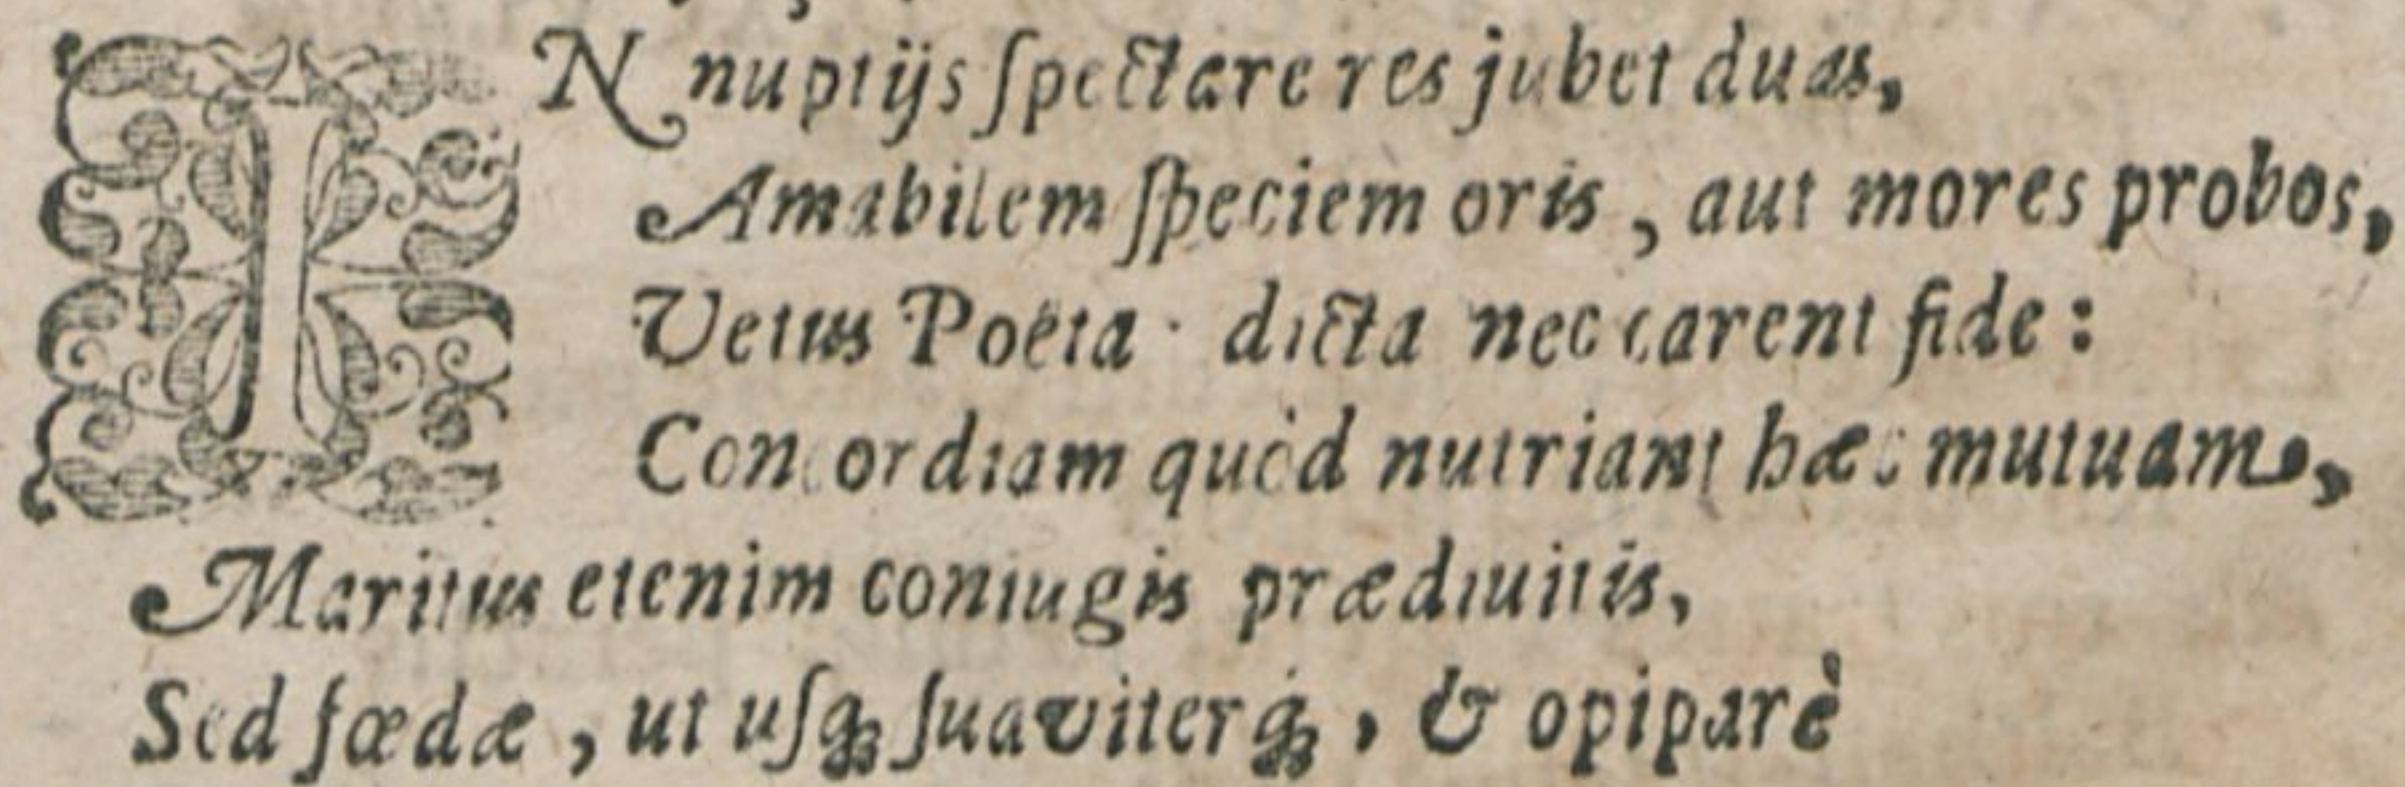 IN nuptijs ſpectare res jubet duas,
Amabilem ſpeciem oris, aut mores probos,
Vetus Poëta · dicta nec carent fide:
Concordiam quòd nutriant hæc mutuam,
Maritus etenim coniugis prædiuitis,
Sed fœdæ, ut uſq́ꝫ ſuaviterq́ꝫ, & opiparè